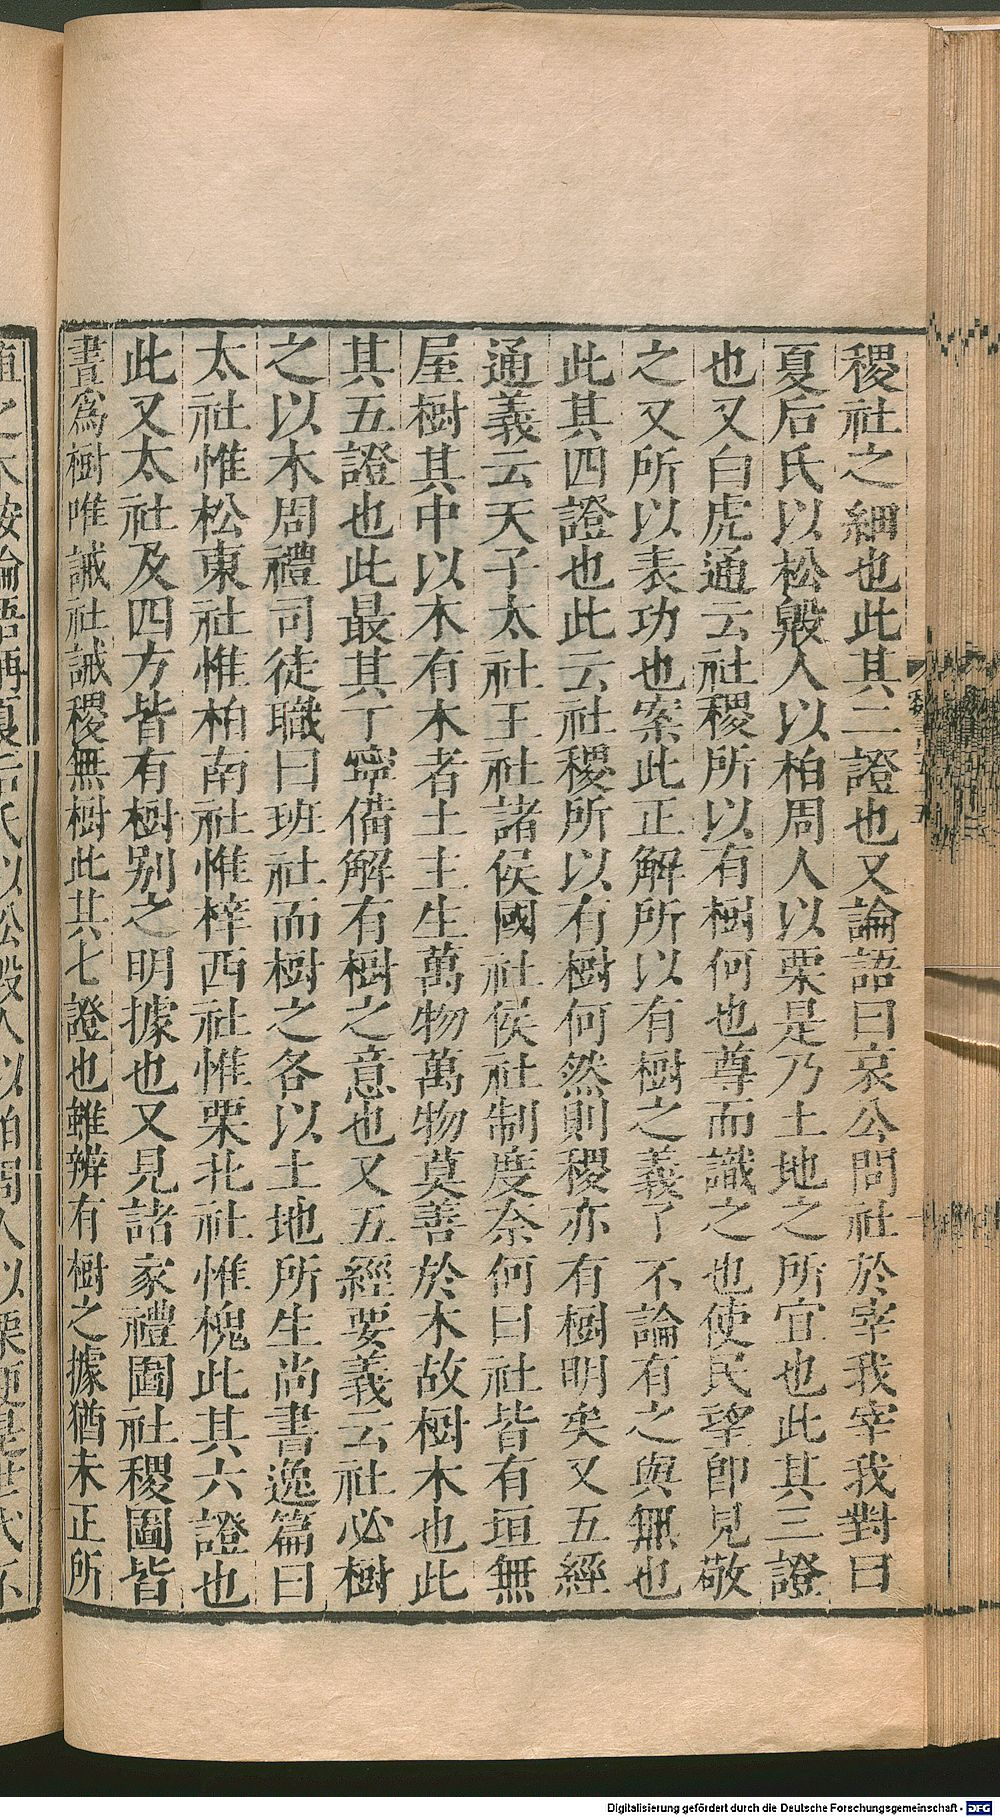 稷社之細也此其二證也又論語曰哀公問社於宰我宰我對曰
夏后氏以松殷人以柏周人以栗是乃土地之所宜也此其三證
也又白虎通云社稷所以有樹何也尊而識之也使民望即見敬
之又所以表功也案此正解所以有樹之義了不論有之與無也
此其四證也此云社稷所以有樹何然則稷亦有樹明矣又五經
通義云天子太社王社諸侯國社侯社制度奈何曰社皆有垣無
屋樹其中以木有木者土主生萬物萬物莫善於木故樹木也此
其五證也此最其丁寧備解有樹之意也又五經要義云社必樹
之以木周禮司徒職曰班社而樹之各以土地所生尚書逸篇曰
太社惟松東社惟柏南社惟梓西社惟栗北社惟槐此其六證也
此又太社及四方皆有樹別之明據也又見諸家禮圖社稷圖皆
畫為樹唯誡社誡稷無樹此其七證也雖辨有樹之據猶未正所
植之木按論語稱夏后氏以松殷人以柏周人以栗便是世代不
Digitalisierung gefördert durch die Deutsche Forschungsgemeinschaft - DFG